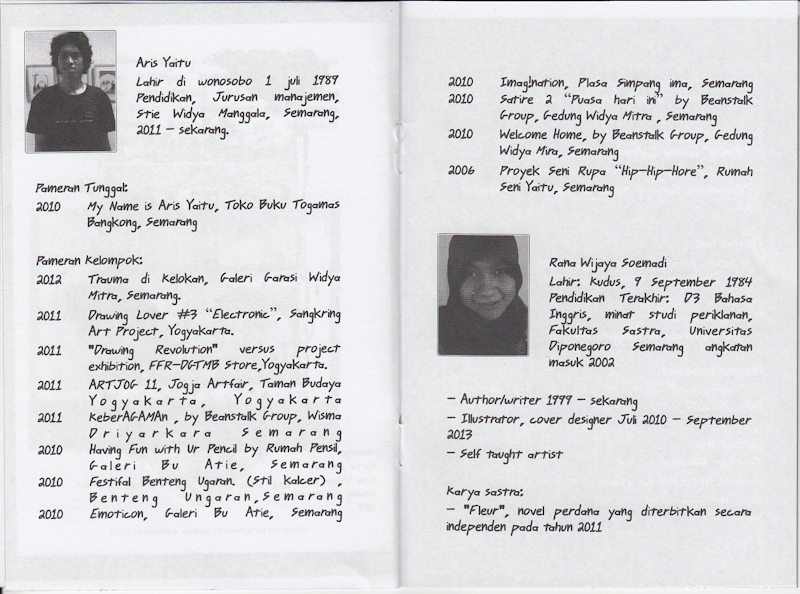 Aris Yaitu
Lahir di wonosobo 1 juli 1989
Pendidikan, Jurusan manajemen,
Stie Widya Manggala, Semarang,
2011 – sekarang.
Pameran Tunggal:
2010 My Name is Aris Yaitu, Toko Buku Togamas
Bangkong, Semarang
Pameran Kelompok:
2012 Trauma di Kelokan, Galeri Garasi Widya
Mitra, Semarang.
2011 Drawing Lover #3 “Electronic”, Sangkring
Art Project, Yogyakarta.
2011 "Drawing Revolution" versus project
exhibition, FFR-DGTMB Store,Yogyakarta.
2011 ARTJOG 11, Jogja Artfair, Taman Budaya
Yogyakarta, Yogyakarta
2011 KeberAGAMAn , by Beanstalk Group, Wisma
Driyarkara Semarang
2010 Having Fun with Ur Pencil by Rumah Pensil,
Galeri Bu Atie, Semarang
2010 Festifal Benteng Ugaran. (Stil Kalcer) ,
Benteng Ungaran,Semarang
2010 Emoticon, Galeri Bu Atie, Semarang
2010 Imag!nation, Plasa Simpang ima, Semarang
2010 Satire 2 “Puasa hari ini” by Beanstalk
Group, Gedung Widya Mitra , Semarang
2010 Welcome Home, by Beanstalk Group, Gedung
Widya Mira, Semarang
2006 Proyek Seni Rupa “Hip-Hip-Hore”, Rumah
Seni Yaitu, Semarang
Rana Wijaya Soemadi
Lahir: Kudus, 9 September 1984
Pendidikan Terakhir: D3 Bahasa
Inggris, minat studi periklanan,
Fakultas Sastra, Universitas
Diponegoro Semarang angkatan
masuk 2002
– Author/writer 1999 – sekarang
– Illustrator, cover designer Juli 2010 – September
2013
– Self taught artist
Karya sastra:
– "Fleur", novel perdana yang diterbitkan secara
independen pada tahun 2011